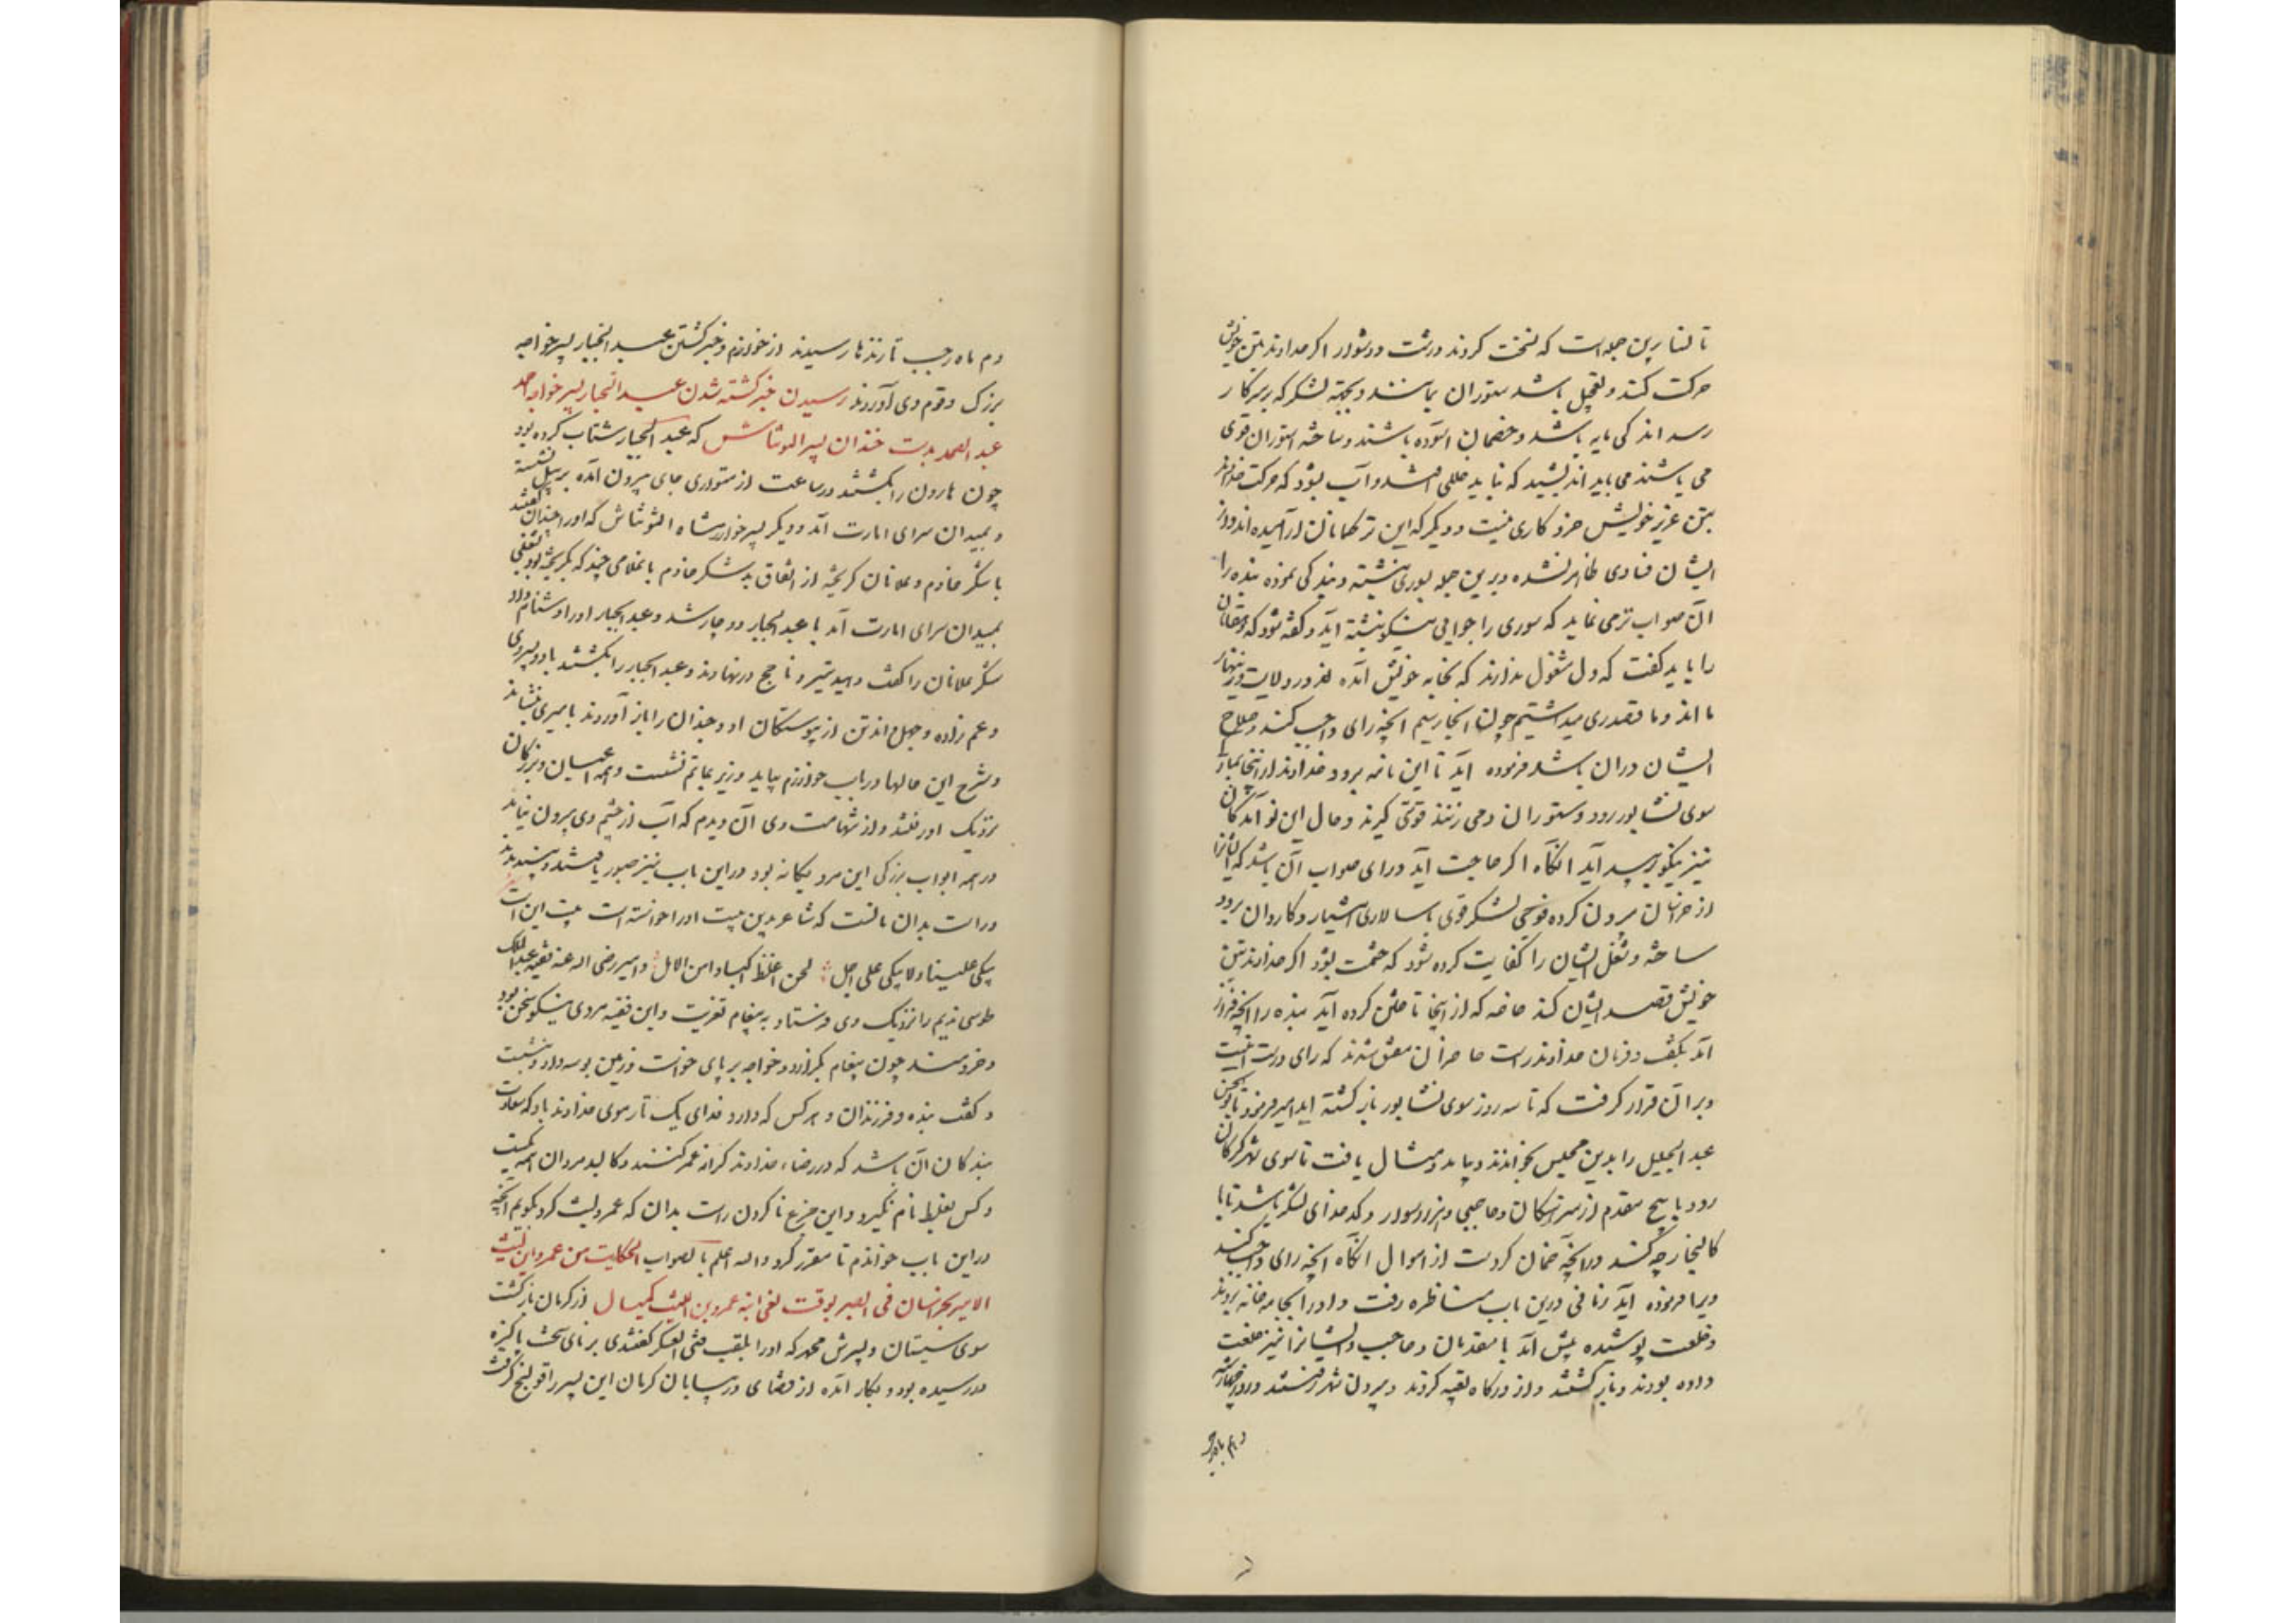 تا نسا برین جمله است که نسخت کردند درشت و دشوار اگر خداوند بتن خویش
حرکت کند و تعجیل باشد ستوران بمانند و بجنبه لشکر که برسر کار
رسد اندکی مایه باشد و خصمان آسوده باشند و ساخته استوران قوی
می باشند می باید اندیشید که نباید خللی افتد و آب بشود که حرکت خداوند
بتن عزیز خویش خرد کاری نیست و دیگر که این ترکمانان آرامیده اند و از
ایشان فسادی ظاهر نشده و برین جمله بسوری نبشته و بندگی نموده بنده را
آن صواب تر می نماید که سوری را جوابی نیکو نبشته آید و گفته شود که دهقانان
را باید گفت که دل مشغول ندارند که بخانه خویش آمده اند و در ولایت و زینهار
ما اند و ما قصد ری میداشتیم چون آنجا رسیم آنچه رای واجب کند و صلاح
ایشان دران باشد فرموده آید تا این نامه برود و خداوند از اینجا
سوی نشابور رود و ستوران دمی زنند و قوتی گیرند و حال این نو آمدگان
نیز نیکوتر پدید آید آنگاه اگر حاجت آید و رای صواب آن باشد که ایشانرا
از خراسان بیرون کرده فوجی لشکر قوی با سالاری هشیار و کاردان برود
ساخته و شغل ایشان را کفایت کرده شود که حشمت بشود اگر خداوند بتن
خویش قصد ایشان کند خاصه که از اینجا تاختن کرده آید بنده را آنچه فراز
آمد بگفت و فرمان خداوند راست حاضران متفق شدند که رای درست اینست
و بران قرار گرفت که تا سه روز سوی نشابور بازگشته آید امیر فرمود تا بوالحسن
عبد الجلیل را بدین مجلس بخواندند و بیامد و مثال یافت تا سوی شهر گرگان
رود با پنج مقدم از سرهنگان و حاجبی و هزار سوار و کدخدای لشکر باشد تا با
کالنجار چه کند در آنچه ضمان کردست از اموال آنگاه آنچه رای واجب کند
ویرا فرموده آید تا فی درین باب مناظره رفت و اورا بجامه خانه بردند
و خلعت پوشیده پیش آمد با مقدمان و حاجب و ایشانرا نیز خلعت
داده بودند و بازگشتند و از درگاه تعبیه کردند و بیرون شهر رفتند و روز چهارشنبه
دهم ماه رجب
دم ماه رجب تازنده ها رسیدند از خوارزم و خبر کشتن عبد الجبار پسر خواجه
بزرگ و قوم وی آوردند رسیدن خبر کشته شدن عبد الجبار پسر خواجه احمد
عبد الصمد بدست خندان پسر التونتاش که عبد الجبار شتاب کرده بود
چون هارون را بکشتند در ساعت از متواری جای بیرون آمده بر پیل نشسته
و بمیدان سرای امارت آمد و دیگر پسر خوارزمشاه التونتاش که اورا خندان گفتند
با شکر خادم و غلامان گریخته از اتفاق بد شکر خادم با غلامی چند که گریخته بود بنفی
بمیدان سرای امارت آمد با عبد الجبار دوچار شد و عبد الجبار اورا دشنام داد
شکر غلامان را گفت دهید تیر و ناچخ درنهادند و عبد الجبار را بکشتند با دو پسر وی
و عم زاده و چهل و اند تن از پیوستگان او و خندان را باز آوردند بامیری بنشاندند
و شرح این حالها در باب خوارزم بیاید وزیر بماتم نشست و همه اعیان و بزرگان
نزدیک او رفتند و از شهامت وی آن دیدم که آب از چشم وی بیرون نیامد
در همه ابواب بزرگی این مرد یگانه بود دراین باب نیز صبور یافتند و بپسندیدند
و راست بدان مانست که شاعر بدین بیت اورا خواسته است بیت این است
یبکی علینا ولا یبکی علی اجل ؛ لنحن اغلظ اکبادا من الابل ؛ و امیر رضی الله عنه فقیه عبد الملک
طوسی ندیم را نزدیک وی فرستاد به پیغام تعزیت و این فقیه مردی نیکو سخن بود
و خردمند چون پیغام بگزارد خواجه بر پای خاست و زمین بوسه داد و بنشست
و گفت بنده و فرزندان و هرکس که دارد فدای یک تار موی خداوند باد که سعادت
بندگان آن باشد که در رضاء خداوند کرانه عمر کنند و کالبد مردان همه یکیست
و کس بغلط نام نگیرد و این جزع ناکردن راست بدان که عمرو لیث کرد بگویم آنچه
دراین باب خواندم تا مقرر گردد والله اعلم بالصواب الحکایت من عمرو ابن لیث
الامیر بخراسان فی الصبر بوقت نعی ابنه عمروبن اللیث یکسال از کرمان بازگشت
سوی سیستان و پسرش محمد که اورا بلقب فتی العسکر گفتندی برنای سخت پاکیزه
دررسیده بود و بکار آمده از قضای در بیابان کرمان این پسر را قولنج گرفت